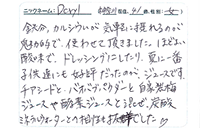 ニックネーム: Dcyyl 神奈川 41 歳 女
鉄分、カルシウムが気軽に摂れるのが
魅力的で、使わせて頂きました。ほどよい
酸味で、ドレッシングにしたり、夏に一番
子供達にも好評だったのが、ジュースです。
チアシードと、バオバブパウダーと自家製梅
ジュースや酵素ジュースとまぜて、炭酸
ミネラルウォーターとの相性も抜群でした♡